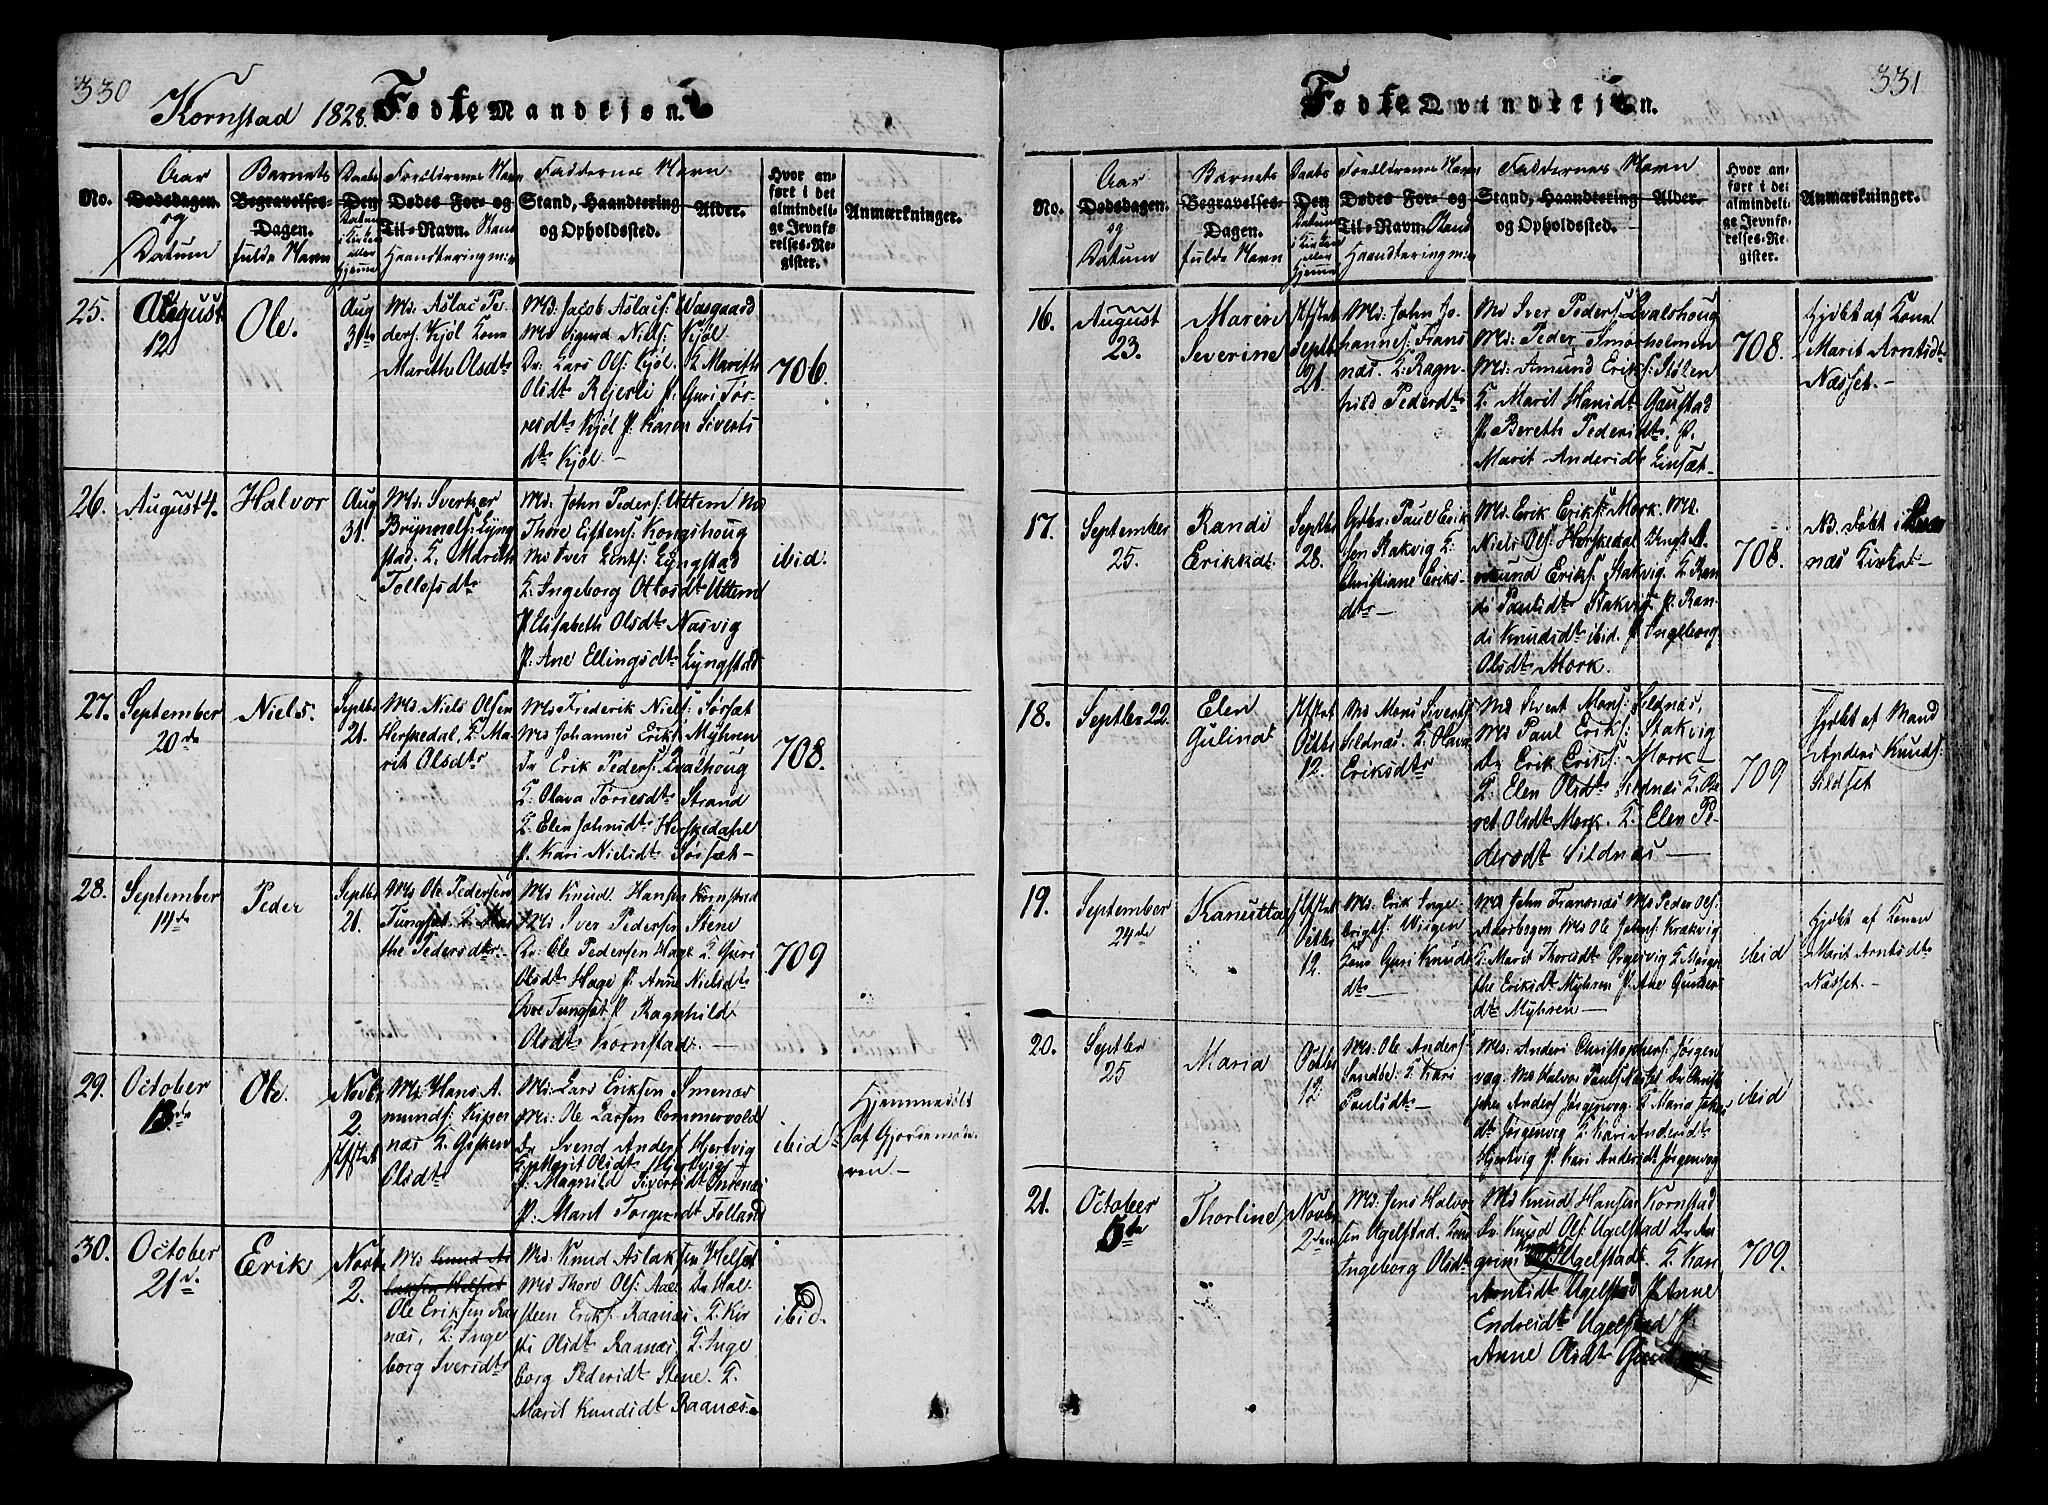 330
Kornstad 1828. Fødte Mandkjøn.
No.
Aar
Dødsdagen.
og
Datum
Barnets
Begravelses-
Dagen.
fulde Navn
Daabs
Den
Datum
i Kirken
eller
Hjemme
Forældrenes Navn
Dødes For- og
Til-Navn. Stand
Haandtering m:v:
Faddernes Navn
Stand, Haandtering
og Opholdssted.
Alder.
Hvor an-
ført i det
almindeli-
ge Jevnfø-
relses-Re-
gister.
Anmærkninger.
25.
August
12
Ole.
Aug
31te
Md. Aslac Pe-
ders: Kjöl Kone
Marith Olsdtr
Md: Jacob Aslacs: Vaagaard
Md Sigurd Niels: Kjöl
Dr: Lars Ols: Kjöl. K Marith
Olsdt Rejerli P. Guri Tör-
resdt Kjöl P. Karen Siverts
dtr Kjöl.
706.
26.
August 4.
Halvor
Aug
31.
Md. Sverker
Brynnels: Lyng
stad. K. Marith
Tollefsdtr
Md. John Peders: Uttem Md
Thore Eistens: Kongshoug
Md Iver Gents: Lyngstad
K Ingeborg Olsdt Uttem
P Elisabeth Olsdt Nasvig
P. Ane Ellingsdt Lyngstad
ibid.
27.
September
20de
Niels.
Septbr
21.
Md. Niels Olsen
Herskedal, K. Ma-
rit Olsdtr
Md Frederik Niels: Sörsæt
Md Johannes Eriks: Myhren
Dr Erik Peders: Qvalhoug
K. Olava Törresdt Strand
K. Elen Johnsdt Herskedahl
P. Kari Nielsdt Sörsæt
708.
28.
September
14de
Peder
Septbr
21.
Md Ole Pedersen
Tungsæt K. Mar
the Pedersdtr.
Md Knud Hansen Kornstad
Md Iver Pedersen Stene
Dr. Ole Pedersen Hage K. Guri
Olsdt Hage P. Anne Nielsdt
Ovre Tungsæt P Ragnhild
Olsdt Kornstad.
709
29.
October
13de
Ole.
Novbr
2.
Md Hans A-
munds:
næs K.
Olsdt
Md. Lars Eriksen Smenæs
Md. Ole Larsen Commervold
Dr Svend Anders: Hjertvig
K Marit Olsdt Hjertvig
P. Magnild Sivertsdt
P. Maret Torgersdt Folland
ibid
Hjemmedöbt
af Gjordemode-
ren.
30.
October
21d.
Erik
Novbr
2.
Md Knud As
laksen Helset
Ole Eriksen Ra
næs, K: Inge
borg Iversdtr
Md. Knud Aslaksen Helset
Md Thore Ols: Aae Dr Hal-
steen Eriks: Raanæs. K. Kir
sti Olsdt Raanæs, K. Inge
borg Pedersdt Stene. K.
Marit Knudsdt Raanæs.
ibid.
331
Fødte Qvindekjøn.
No.
Aar
Dødsdagen.
og
Datum
Barnets
Begravelses-
Dagen.
fulde Navn
Daabs
Den
Datum
i Kirken
eller
Hjemme
Forældrenes Navn
Dødes For- og
Til-Navn. Stand
Haandtering m:v:
Faddernes Navn
Stand, Haandtering
og Opholdssted.
Alder.
Hvor an-
ført i det
almindeli-
ge Jevnfø-
relses-Re-
gister.
Anmærkninger.
16.
August
23.
Maren
Severine
Septbr
21
Md: John Jo-
hannes: Frans
næs. K. Ragn-
hild Pedersdtr
Md Iver Peders: Qvalshoug
Md: Peder Smörholmen
Md: Amund Eriks: Stölen
K. Marit Hansdt Gaustad
P. Bereth Pedersdt. P.
Marit Andersdt Linsæt
708.
Hjdöbt af Kone
Marit Arntsdt
Næsset.
17.
September
25.
Randi
Erikkdt
Septbr
28.
Gdbr. Paul Erik
sen Stakvig K.
Christiane Eriks-
dtr
Md. Erik Eriks: Mork. Md.
Niels Ols: Herskedal Ungk. A
mund Eriks: Stakvig. K. Ran
di Paulsdt Stakvig. P. Ran-
di Knudsdt ibid. P Ingeborg
Olsdt Mork.
708.
NB. döbt i
næs Kirke
18.
Septber 22.
Elen
Gulina
Octbr
12.
Md Mons Siverts:
Sildnæs. K. Olava
Eriksdtr
Md Sivert Mons: Sildnæs,
Md Paul Eriks: Stakvig
Dr Erik Eriks: Mork
K. Elen Olsdt Sildnæs K. Be
ret Olsdt Mork. K. Elen Pe-
dersdt Sildnæs
709
Hjdöbt af Mand
Anders Knuds:
Sildset
19.
September
24de
Kanutta
Octbr
12.
Md. Erik Inge
brigts: Wiigen
Kone Guri Knuds
dtr
Md John Fransnæs Md Peder Ols:
Aarsbogen Md Ole Johns: Krækvig
K. Marit Thoresdt Ørgesvig K. Marge
the Eriksdt Myhren P. Ane Gunder
dtr Myhren
ibid
Hjdöbt af Konen
Marit Arntsdt
Næsset.
20.
Septber
25
Maria
Octbr
12.
Md. Ole Anders:
Sandöe. K. Kari
Paulsdtr
Md. Anders Christophers: Jörgen
vaag. Md Halvor Pauls: Næsset Dr Christ
pher Anders: Jörgenvog. K Maria
dt Jörgenvig K. Kari Andersdt
Hjertvig P. Kari Andersdt Jörgenvog
ibid
21.
October
5te
Thorline
Novbr
2den
Md. Jens Halvor
sen Ugelstad. Kone
Ingeborg Olsdtr
Md Knud Hansen Kornstad
Dr Knud Ols: Ugelstad Dr An
grim Ugelstad. K. Kari
Arntsdt Ugelstad P. Anne
Endresdt Ugelstad P.
Anne Olsdt
709.